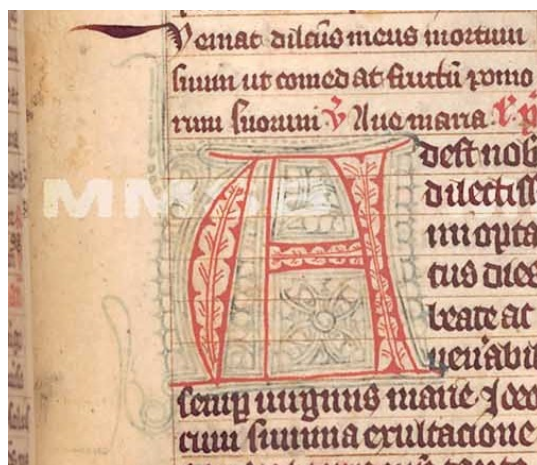 Veniat dilcūs meus in ortum
suum ut comedat fructū pomo
rum suorum v̄ Aue maria
Adest nob
dilectiss
imi opta
tus dies
beate ac
uen'abil
semp uirginis marie Jdeo
cum summa exultacione